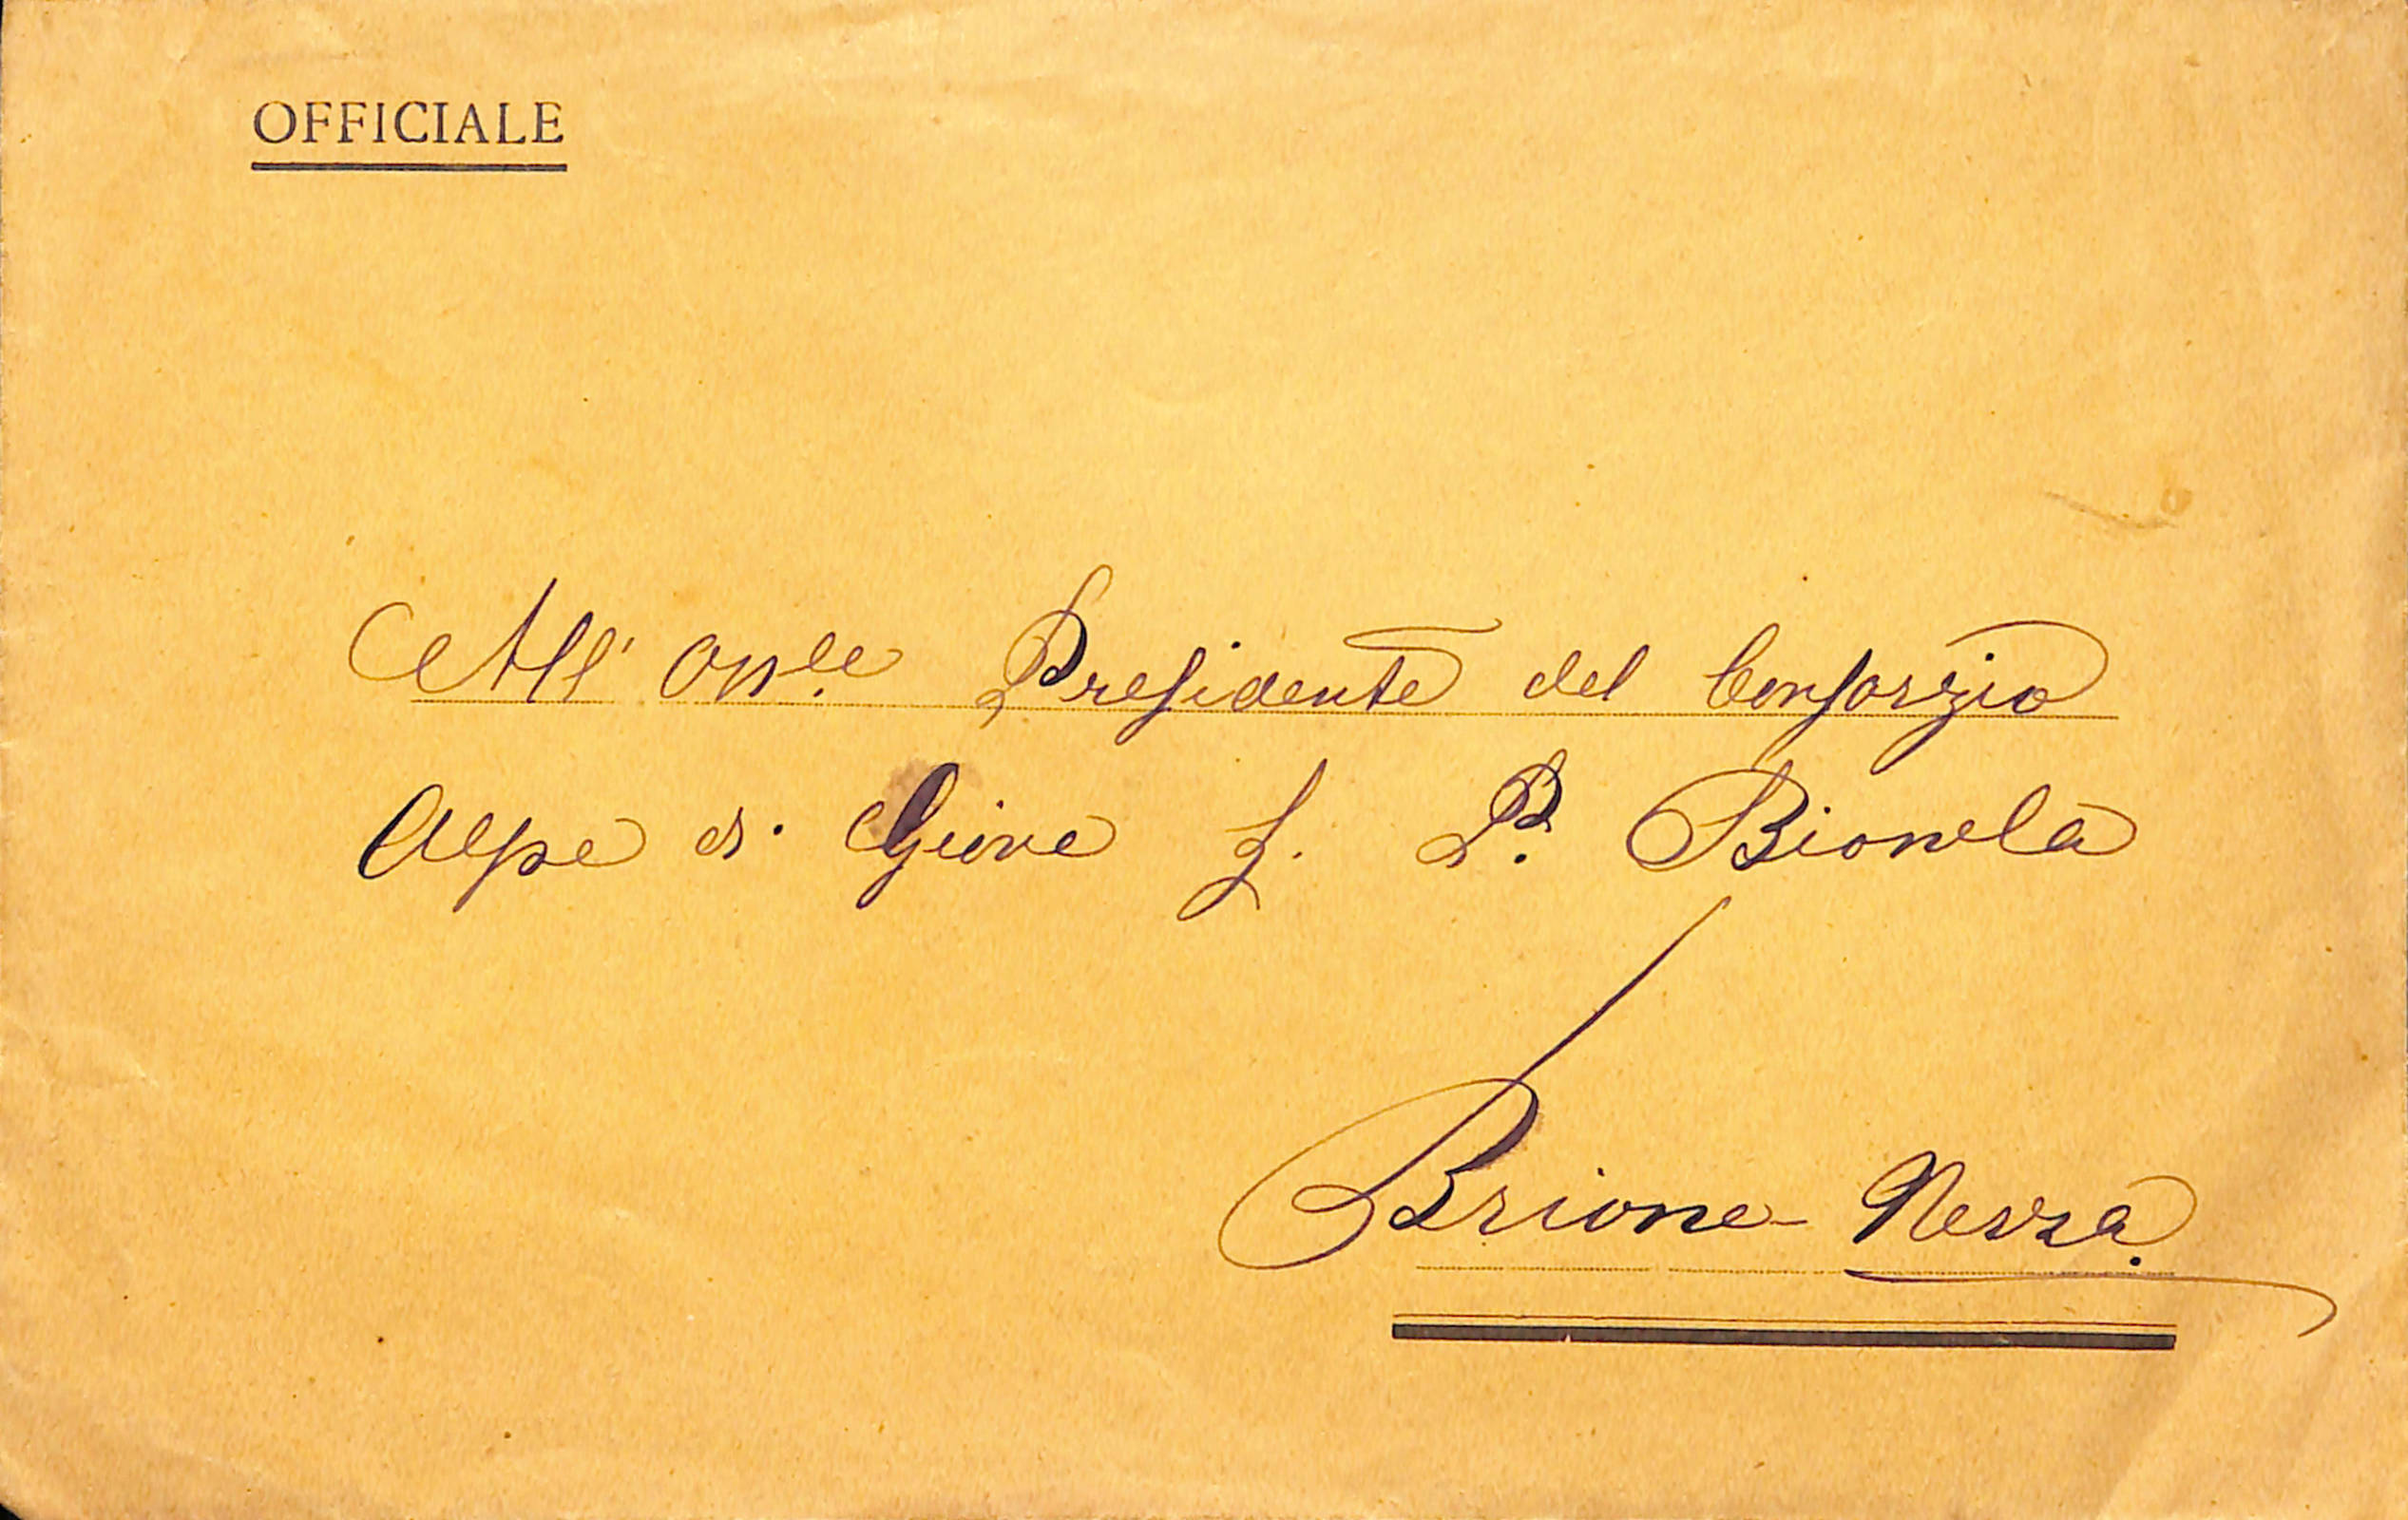 OFFICIALE
All' On.le Presidente del Consorzio
Alpe di Giove P. Bionda
Brione-Verza.